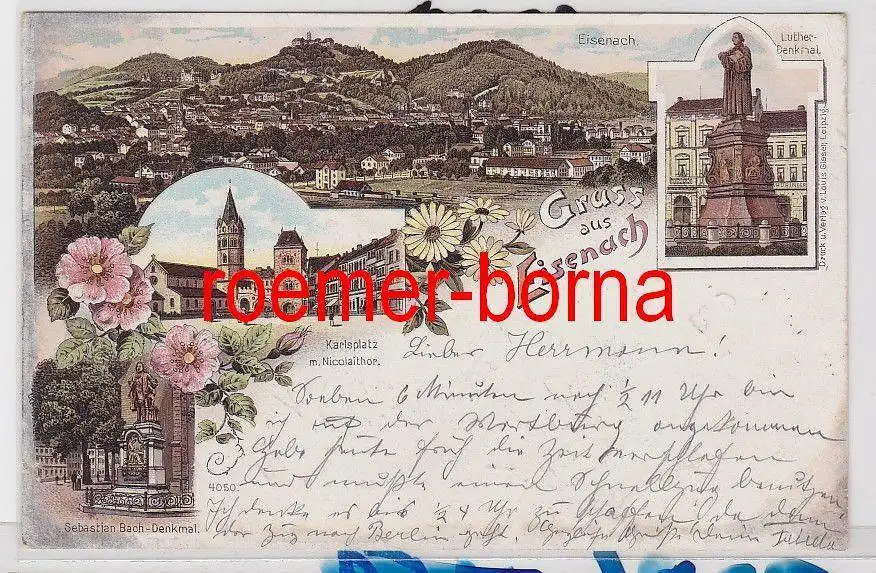 Eisenach.
Luther-
Denkmal.
Druck u. Verlag v. Louis Glaser, Leipzig.
Gruss
aus
Eisenach
roemer-borna
Karlsplatz
m. Nicolaithor.
Lieber Herrmann!
Soeben 6 Minuten nach ½ 11 Uhr bin
ich auf der Wartburg angekommen
Habe heute früh die Zeit verschlafen
und mußte einen Schnellzug benutzen
4050.
Ich denke es bis ¼ 4 Uhr zu schaffen, da dann
der Zug nach Berlin geht. Herzliche Grüße Dein
Sebastian Bach-Denkmal.